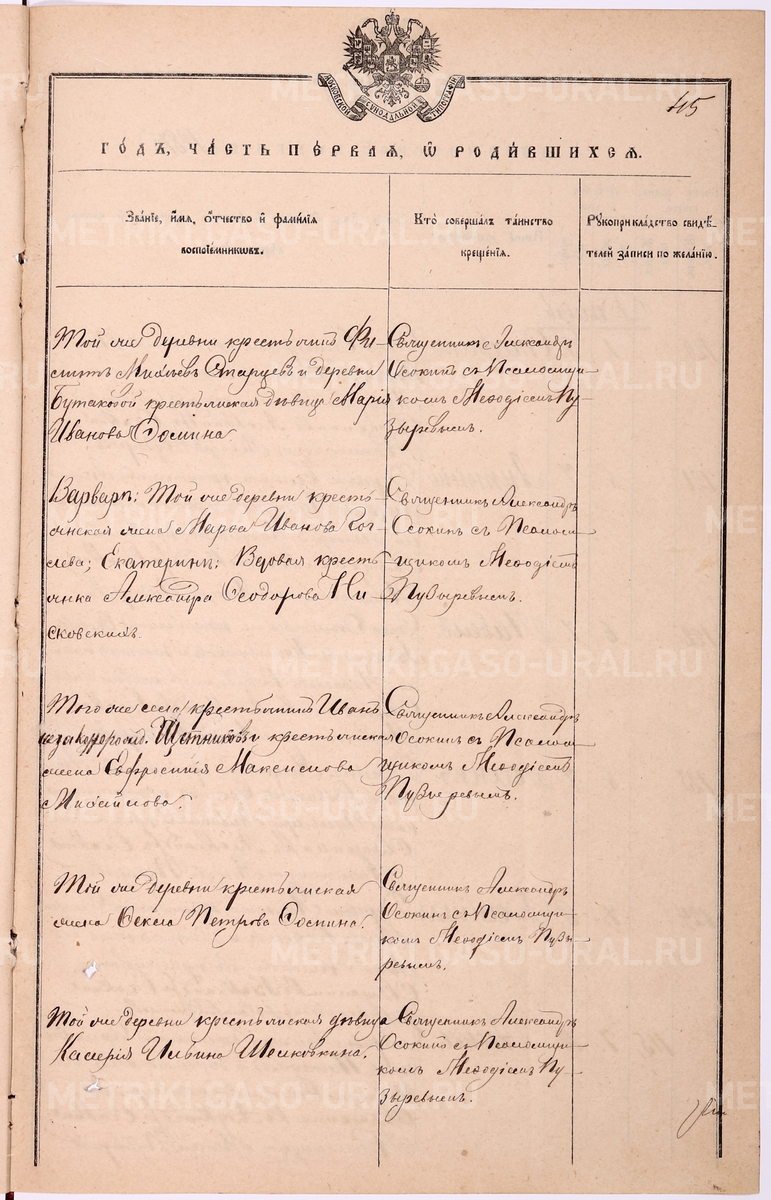 МОСКОВСКОЙ СѴНОДАЛЬНОЙ ТИПОГРАФІИ
45
ГО́ДЪ, ЧА́СТЬ ПЕ́РВАЯ, Ѡ РОДИ́ВШИХСЯ.
Зва́нїе, и́мя, о́тчество и фами́лїя
воспрїе́мникѡвъ.
Кто̀ соверша́лъ та́инство
креще́нїя.
Рꙋкоприкла́дство свидѣ́-
телей за́писи по жела́нїю.
Той же деревни крестьянинъ Фи-
липъ Старцевъ и деревни
Бутаковой крестьянская дѣвица Марія
Иванова Ѳомина
Священникъ Александръ
Осокинъ съ Псаломщи-
комъ Меѳодіемъ Пу-
зыревымъ.
Варвары: Той же деревни кресть-
янская жена Марѳа Иванова
Екатерины: Вдовая кресть-
янка Александра Ѳеодорова
Священникъ Александръ
Осокинъ съ Псалом-
щикомъ Меѳодіемъ
Пузыревымъ.
Того же села крестьянинъ Иванъ
Щипниковъ и крестьянская
жена Евфросинія Максимова
Михайлова.
Священникъ Александръ
Осокинъ съ Псалом-
щикомъ Меѳодіемъ
Пузыревымъ.
Той же деревни крестьянская
жена Ѳекла Петрова Ѳомина.
Священникъ Александръ
Осокинъ съ Псаломщи-
комъ Меѳодіемъ Пузы-
ревымъ.
Той же деревни крестьянская дѣвица
Калерія Ильина Шелковкина.
Священникъ Александръ
Осокинъ съ Псаломщи-
комъ Меѳодіемъ Пу-
зыревымъ.
METRIKI.GASO-URAL.RU